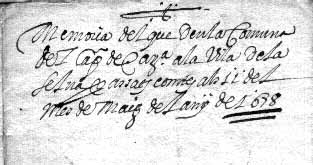 Memoria del que deu la Comuna
del Cap de Cany.ª a la Vila de la
Selva comes als 11 del
Mes de Maig de l any de 1678